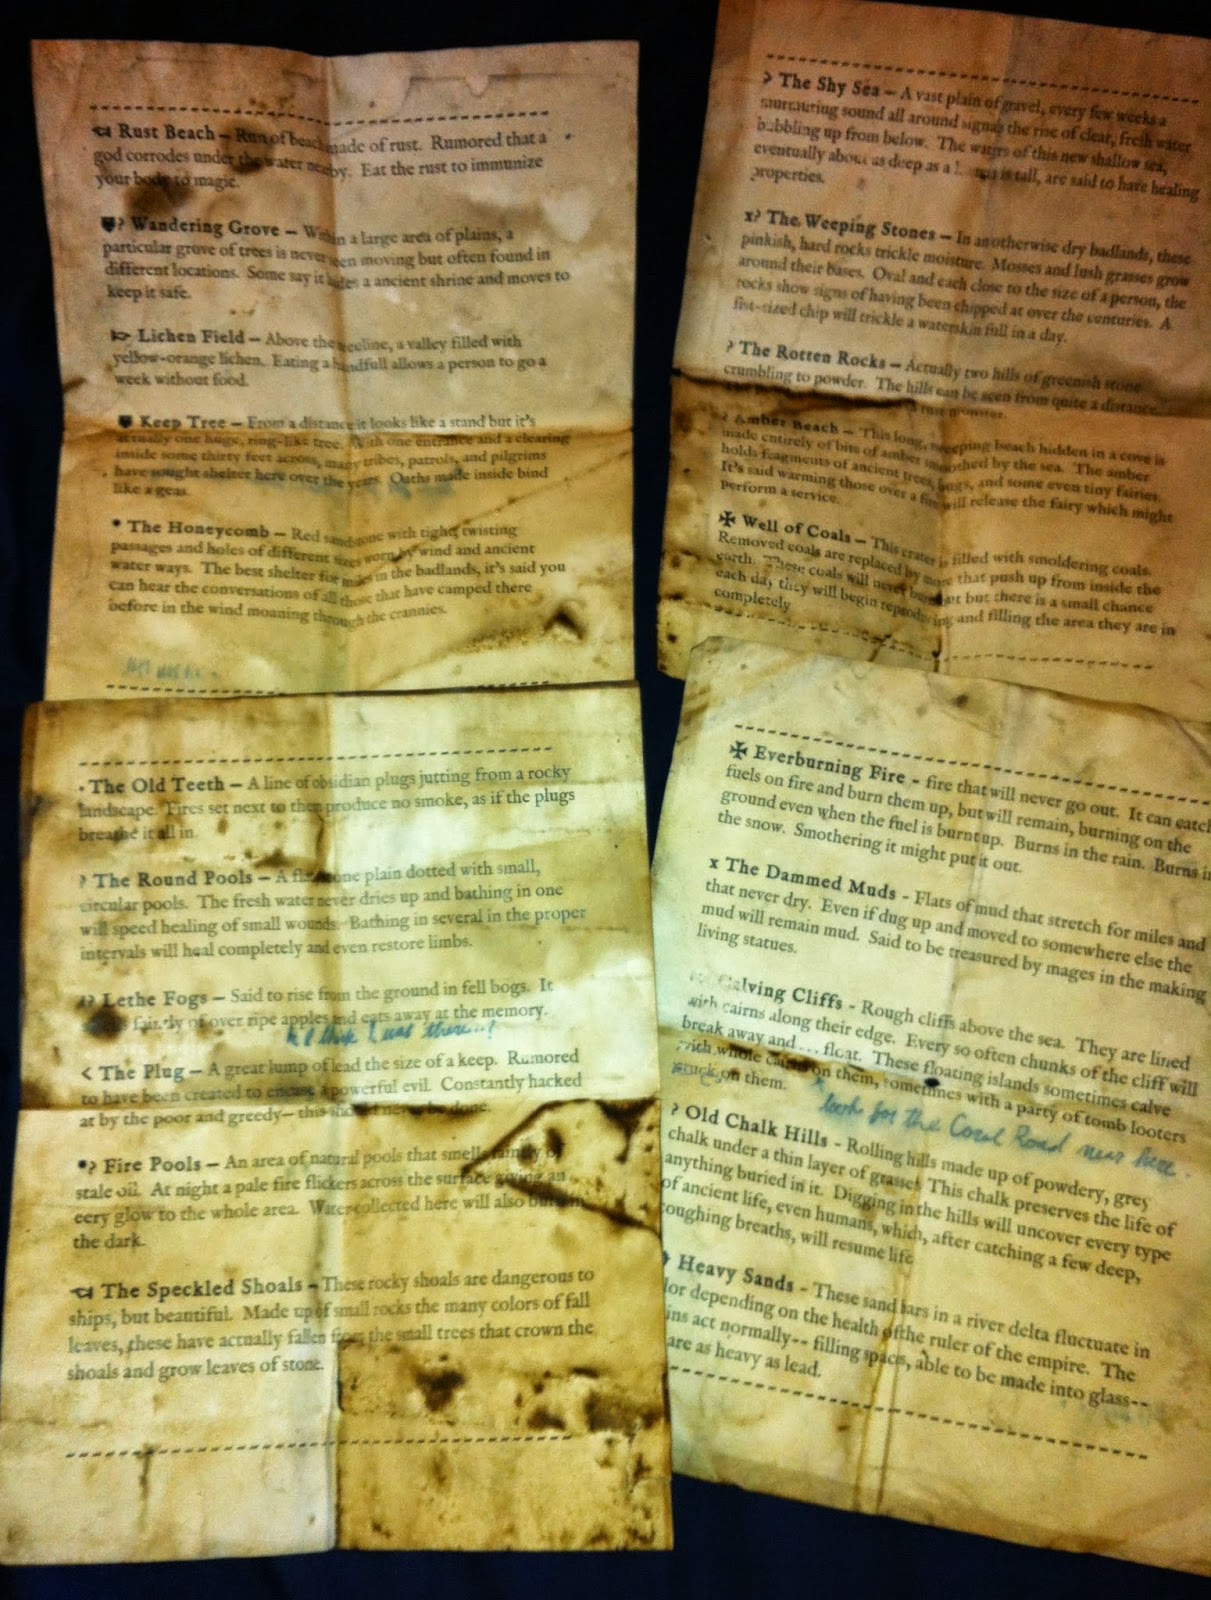 Rust Beach – Run of beach made of rust. Rumored that a
god corrodes under the water nearby. Eat the rust to immunize
your body to magic.
? Wandering Grove – Within a large area of plains, a
particular grove of trees is never seen moving but often found in
different locations. Some say it hides a ancient shrine and moves to
keep it safe.
Lichen Field – Above the treeline, a valley filled with
yellow-orange lichen. Eating a handfull allows a person to go a
week without food.
Keep Tree – From a distance it looks like a stand but it's
actually one huge, ring-like tree. With one entrance and a clearing
inside some thirty feet across, many tribes, patrols, and pilgrims
have sought shelter here over the years. Oaths made inside bind
like a geas.
• The Honeycomb – Red sandstone with tight, twisting
passages and holes of different sizes worn by wind and ancient
water ways. The best shelter for miles in the badlands, it's said you
can hear the conversations of all those that have camped there
before in the wind moaning through the crannies.
? The Shy Sea – A vast plain of gravel, every few weeks a
murmuring sound all around signals the rise of clear, fresh water
bubbling up from below. The waters of this new shallow sea,
eventually about as deep as a is tall, are said to have healing
properties.
x? The Weeping Stones – In an otherwise dry badlands, these
pinkish, hard rocks trickle moisture. Mosses and lush grasses grow
around their bases. Oval and each close to the size of a person, the
rocks show signs of having been chipped at over the centuries. A
fist-sized chip will trickle a waterskin full in a day.
? The Rotten Rocks – Actually two hills of greenish stone
crumbling to powder. The hills can be seen from quite a distance.
rust monster.
? Amber Beach – This long, sweeping beach hidden in a cove is
made entirely of bits of amber smoothed by the sea. The amber
holds fragments of ancient trees, bugs, and some even tiny fairies.
It's said warming those over a fire will release the fairy which might
perform a service.
✠ Well of Coals – This crater is filled with smoldering coals.
Removed coals are replaced by more that push up from inside the
earth. These coals will never burn out but there is a small chance
each day they will begin reproducing and filling the area they are in
completely
• The Old Teeth – A line of obsidian plugs jutting from a rocky
landscape. Fires set next to them produce no smoke, as if the plugs
breathe it all in.
? The Round Pools – A flat stone plain dotted with small,
circular pools. The fresh water never dries up and bathing in one
will speed healing of small wounds. Bathing in several in the proper
intervals will heal completely and even restore limbs.
? Lethe Fogs – Said to rise from the ground in fell bogs. It
faintly of over ripe apples and eats away at the memory.
I think I was there...!
< The Plug – A great lump of lead the size of a keep. Rumored
to have been created to encase a powerful evil. Constantly hacked
at by the poor and greedy– this should never be done.
•? Fire Pools – An area of natural pools that smells faintly of
stale oil. At night a pale fire flickers across the surface giving an
eery glow to the whole area. Water collected here will also burn in
the dark.
The Speckled Shoals – These rocky shoals are dangerous to
ships, but beautiful. Made up of small rocks the many colors of fall
leaves, these have actually fallen from the small trees that crown the
shoals and grow leaves of stone.
✠ Everburning Fire - fire that will never go out. It can catch
fuels on fire and burn them up, but will remain, burning on the
ground even when the fuel is burnt up. Burns in the rain. Burns in
the snow. Smothering it might put it out.
x The Dammed Muds - Flats of mud that stretch for miles and
that never dry. Even if dug up and moved to somewhere else the
mud will remain mud. Said to be treasured by mages in the making
living statues.
Calving Cliffs - Rough cliffs above the sea. They are lined
with cairns along their edge. Every so often chunks of the cliff will
break away and ... float. These floating islands sometimes calve
with whole cairns on them, sometimes with a party of tomb looters
stuck on them.
look for the Coral Road near here.
? Old Chalk Hills - Rolling hills made up of powdery, grey
chalk under a thin layer of grasses This chalk preserves the life of
anything buried in it. Digging in the hills will uncover every type
of ancient life, even humans, which, after catching a few deep,
coughing breaths, will resume life
Heavy Sands - These sand bars in a river delta fluctuate in
lor depending on the health of the ruler of the empire. The
ins act normally-- filling spaces, able to be made into glass--
are as heavy as lead.